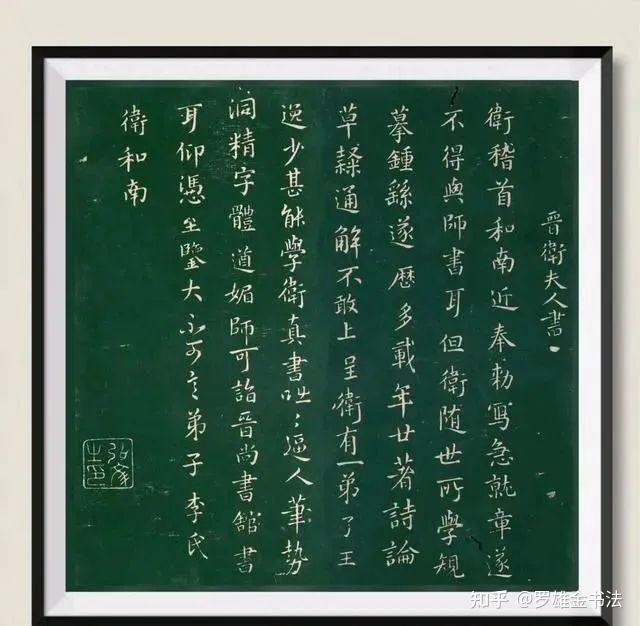 晉衛夫人書
衛稽首和南近奉勅寫急就章遂
不得與師書耳但衛随世所學規
摹鍾繇遂歷多載年廿著詩論
草隸通解不敢上呈衛有一弟子王
逸少甚能學衛真書咄〻逼人筆勢
洞精字體遒媚師可詣晉尚書館書
耳仰憑至鑒大不可言弟子李氏
衛和南
知乎 @罗雄金书法